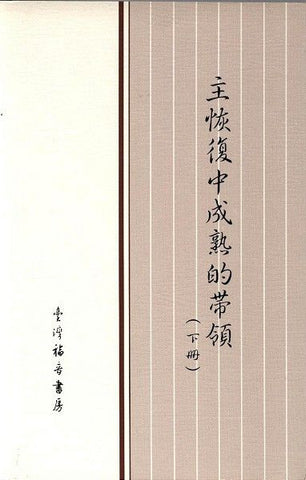 主恢復中成熟的带領
(下冊)
臺灣福音書房